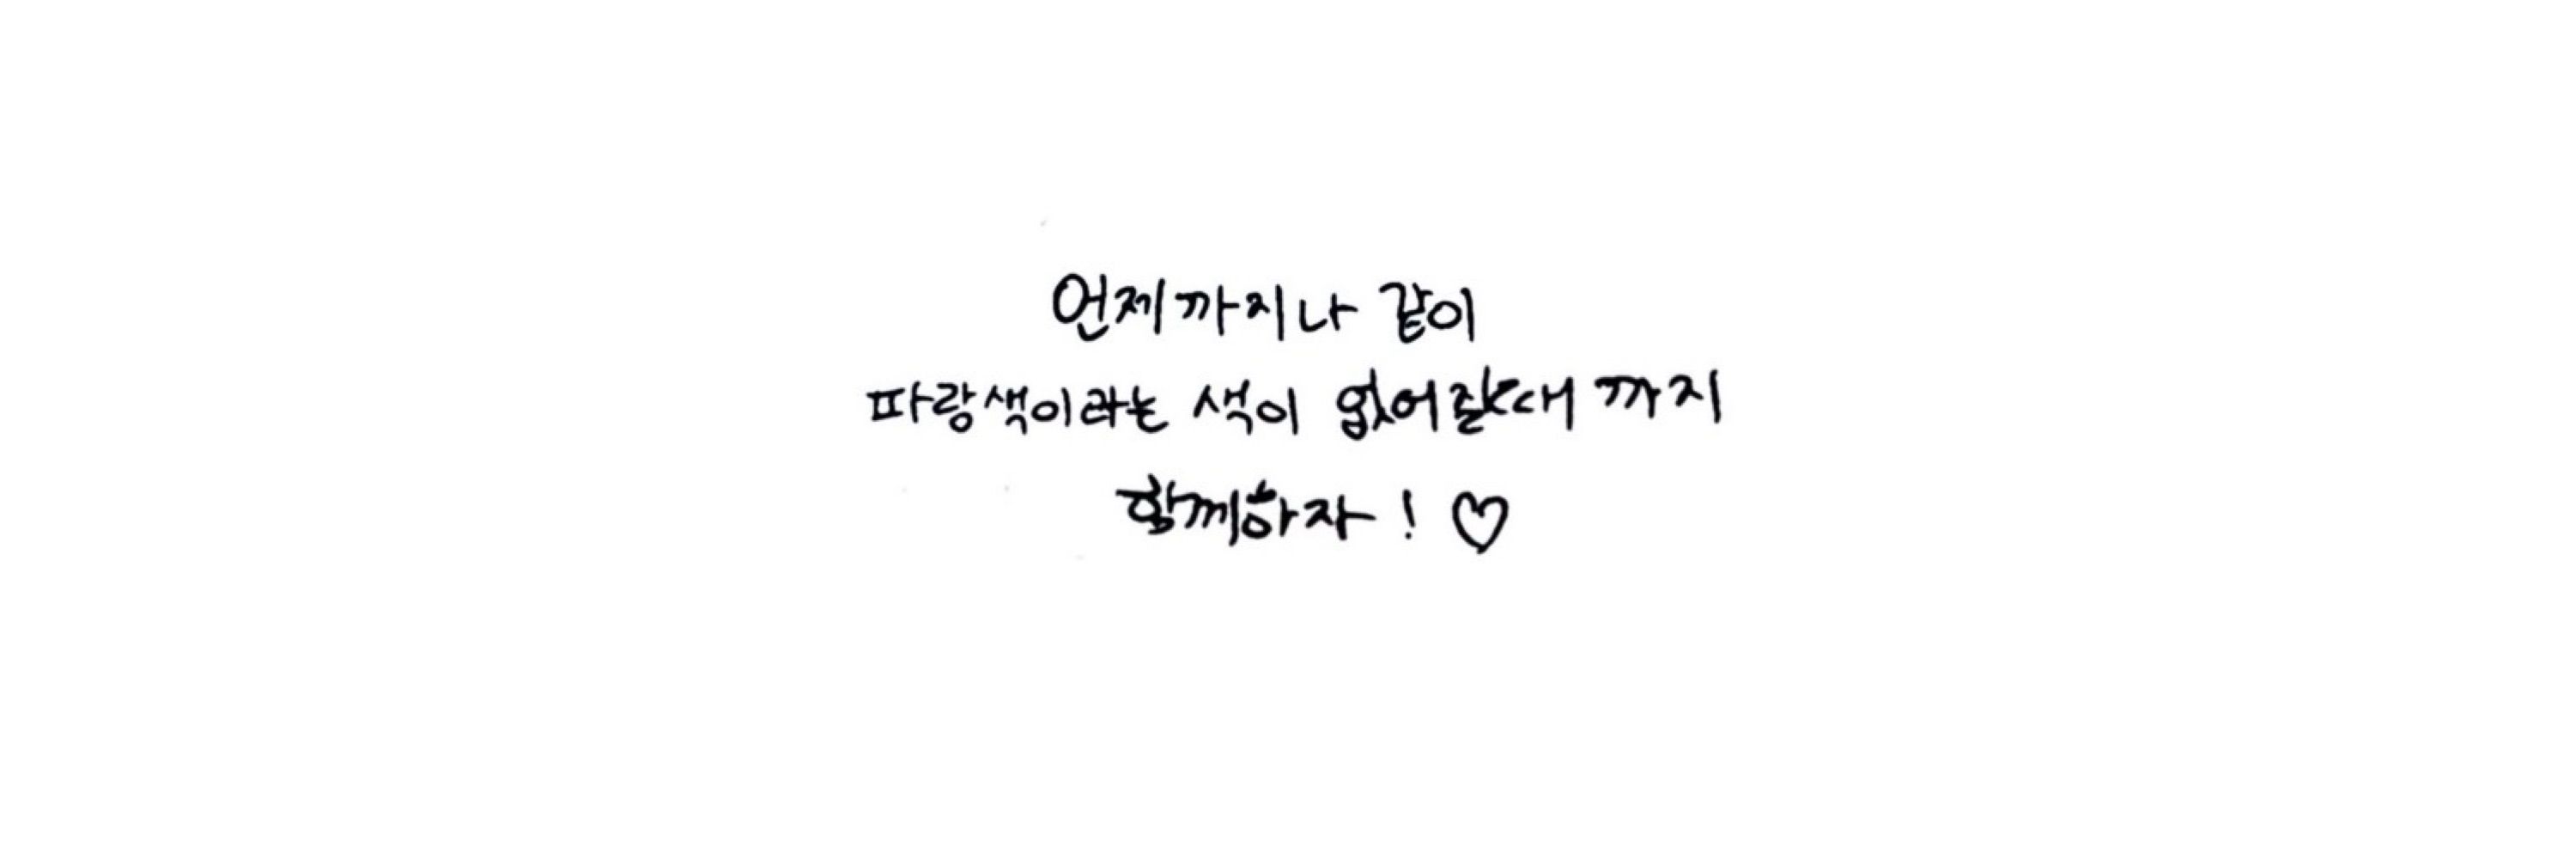 언제까지나 같이
파랑색이라는 색이 없어질때까지
함께하자! ♡